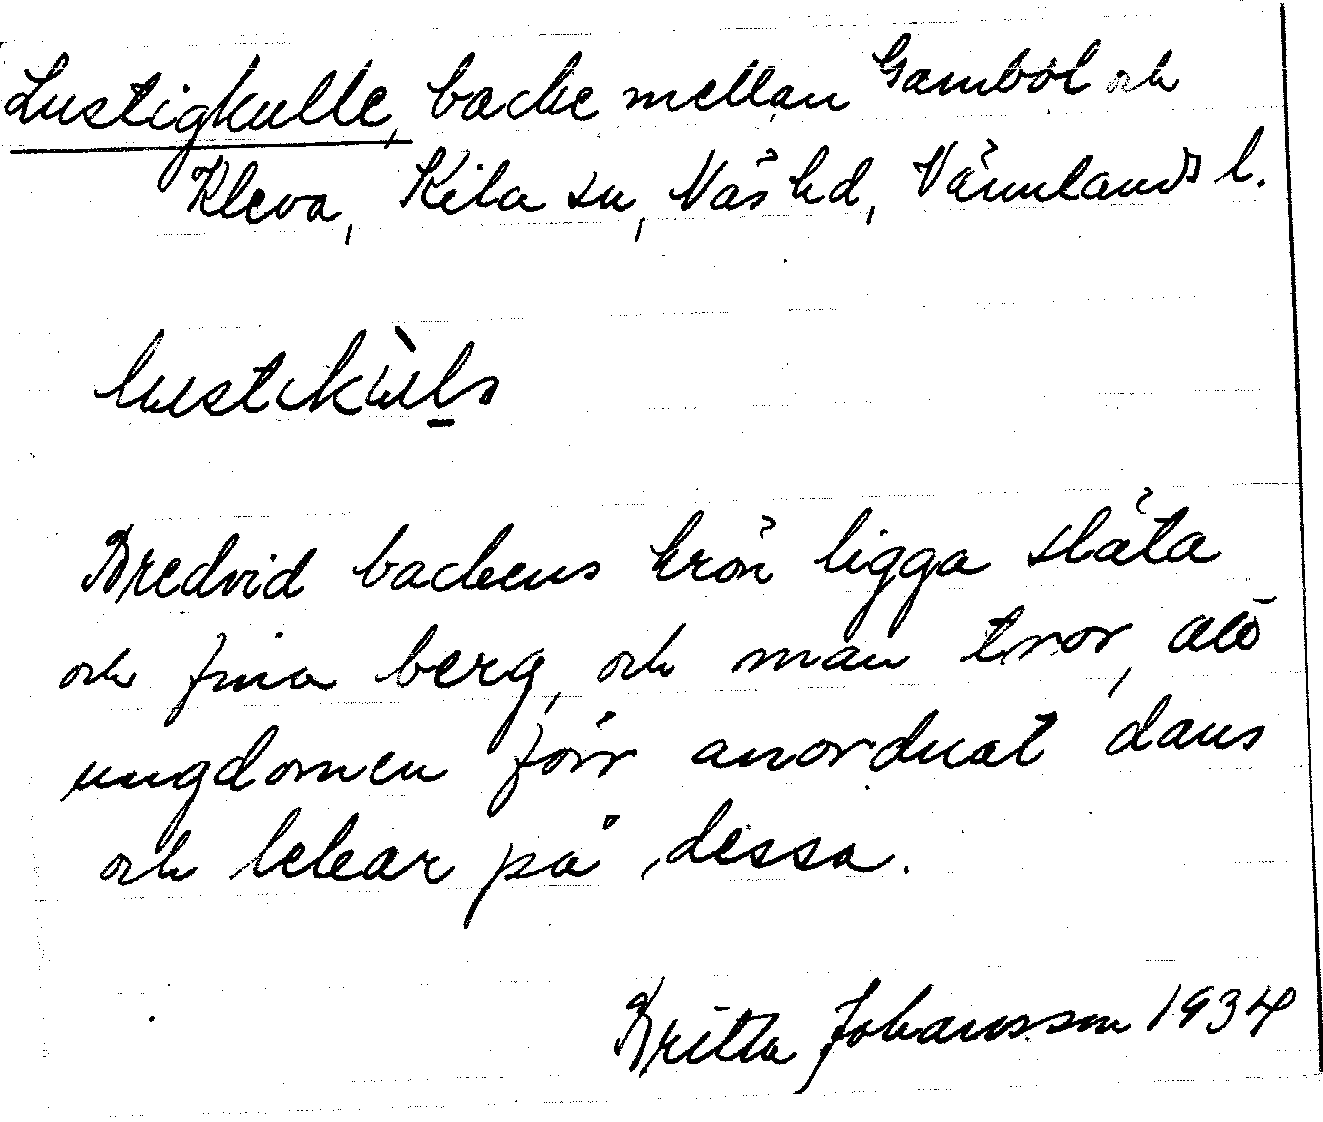 Lustigkulle, backe mellan Gamböl och
Kleva, Kila sn, Näs hd, Värmlands l.
lustikùls
Bredvid backens krön ligga släta
och fina berg, och man tror, att
ungdomen förr anordnat dans
och lekar på dessa.
Britta Johansson 1934